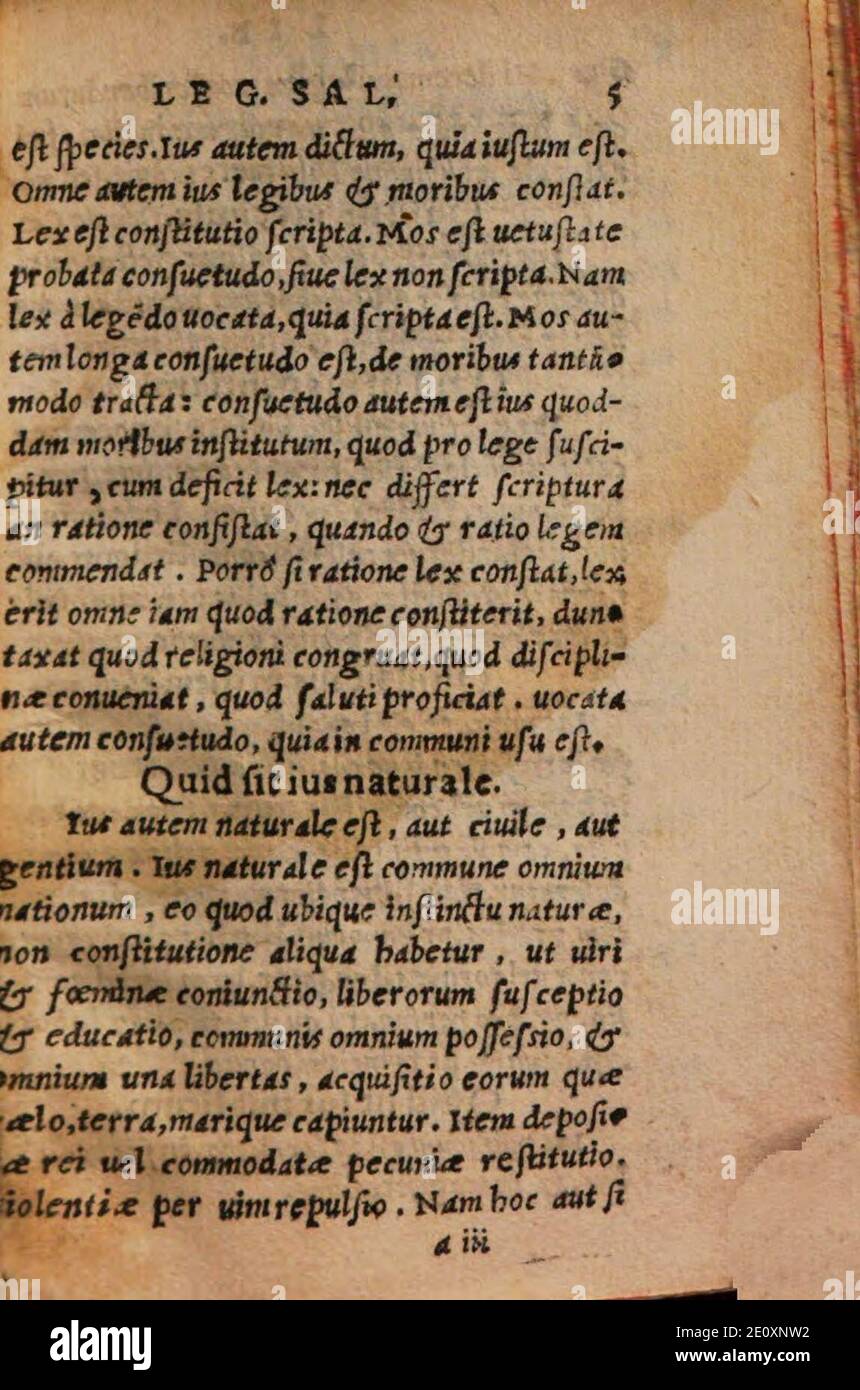 LEG. SAL. 5
est species. Ius autem dictum, quia iustum est.
Omne autem ius legibus & moribus constat.
Lex est constitutio scripta. Mos est uetustate
probata consuetudo, siue lex non scripta. Nam
lex à legēdo uocata, quia scripta est. Mos au-
tem longa consuetudo est, de moribus tantū-
modo tracta: consuetudo autem est ius quod-
dam moribus institutum, quod pro lege susci-
pitur, cum deficit lex: nec differt scriptura
an ratione consistat, quando & ratio legem
commendat. Porrò si ratione lex constat, lex
erit omne iam quod ratione constiterit, dun-
taxat quod religioni congruat, quod discipli-
næ conueniat, quod saluti proficiat. uocata
autem consuetudo, quia in communi usu est.
Quid sit ius naturale.
Ius autem naturale est, aut ciuile, aut
gentium. Ius naturale est commune omnium
nationum, eo quod ubique instinctu naturæ,
non constitutione aliqua habetur, ut uiri
& fœminæ coniunctio, liberorum susceptio
& educatio, communis omnium possessio, &
omnium una libertas, acquisitio eorum quæ
cælo, terra, marique capiuntur. Item deposi-
æ rei uel commodatæ pecuniæ restitutio.
uiolentiæ per uim repulsio. Nam hoc aut si
a iii
alamy
Image ID: 2E0XNW2
www.alamy.com